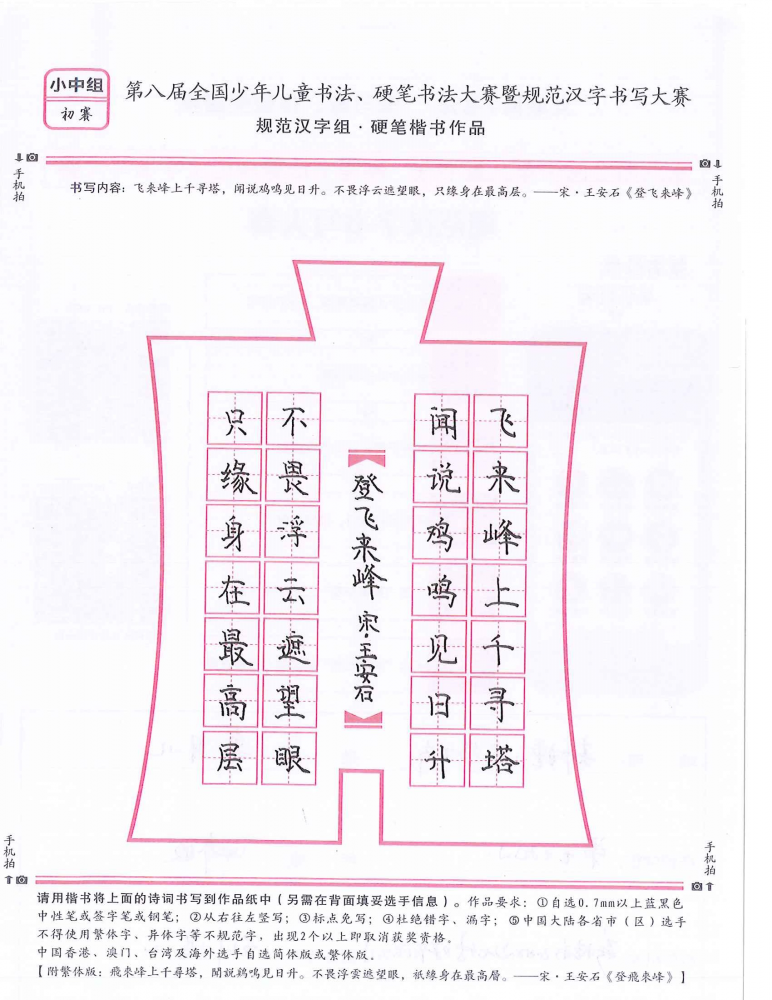 小中组
初赛
第八届全国少年儿童书法、硬笔书法大赛暨规范汉字书写大赛
规范汉字组·硬笔楷书作品
手机拍
手机拍
书写内容：飞来峰上千寻塔，闻说鸡鸣见日升。不畏浮云遮望眼，只缘身在最高层。——宋·王安石《登飞来峰》
飞来峰上千寻塔
闻说鸡鸣见日升
登飞来峰 宋·王安石
不畏浮云遮望眼
只缘身在最高层
手机拍
手机拍
请用楷书将上面的诗词书写到作品纸中（另需在背面填妥选手信息）。作品要求：①自选0.7mm以上蓝黑色
中性笔或签字笔或钢笔；②从右往左竖写；③标点免写；④杜绝错字、漏字；⑤中国大陆各省市（区）选手
不得使用繁体字、异体字等不规范字，出现2个以上即取消获奖资格.
中国香港、澳门、台湾及海外选手自选简体版或繁体版.
【附繁体版：飛來峰上千尋塔，聞說鷄鳴見日升。不畏浮雲遮望眼，祇緣身在最高層。——宋·王安石《登飛來峰》】